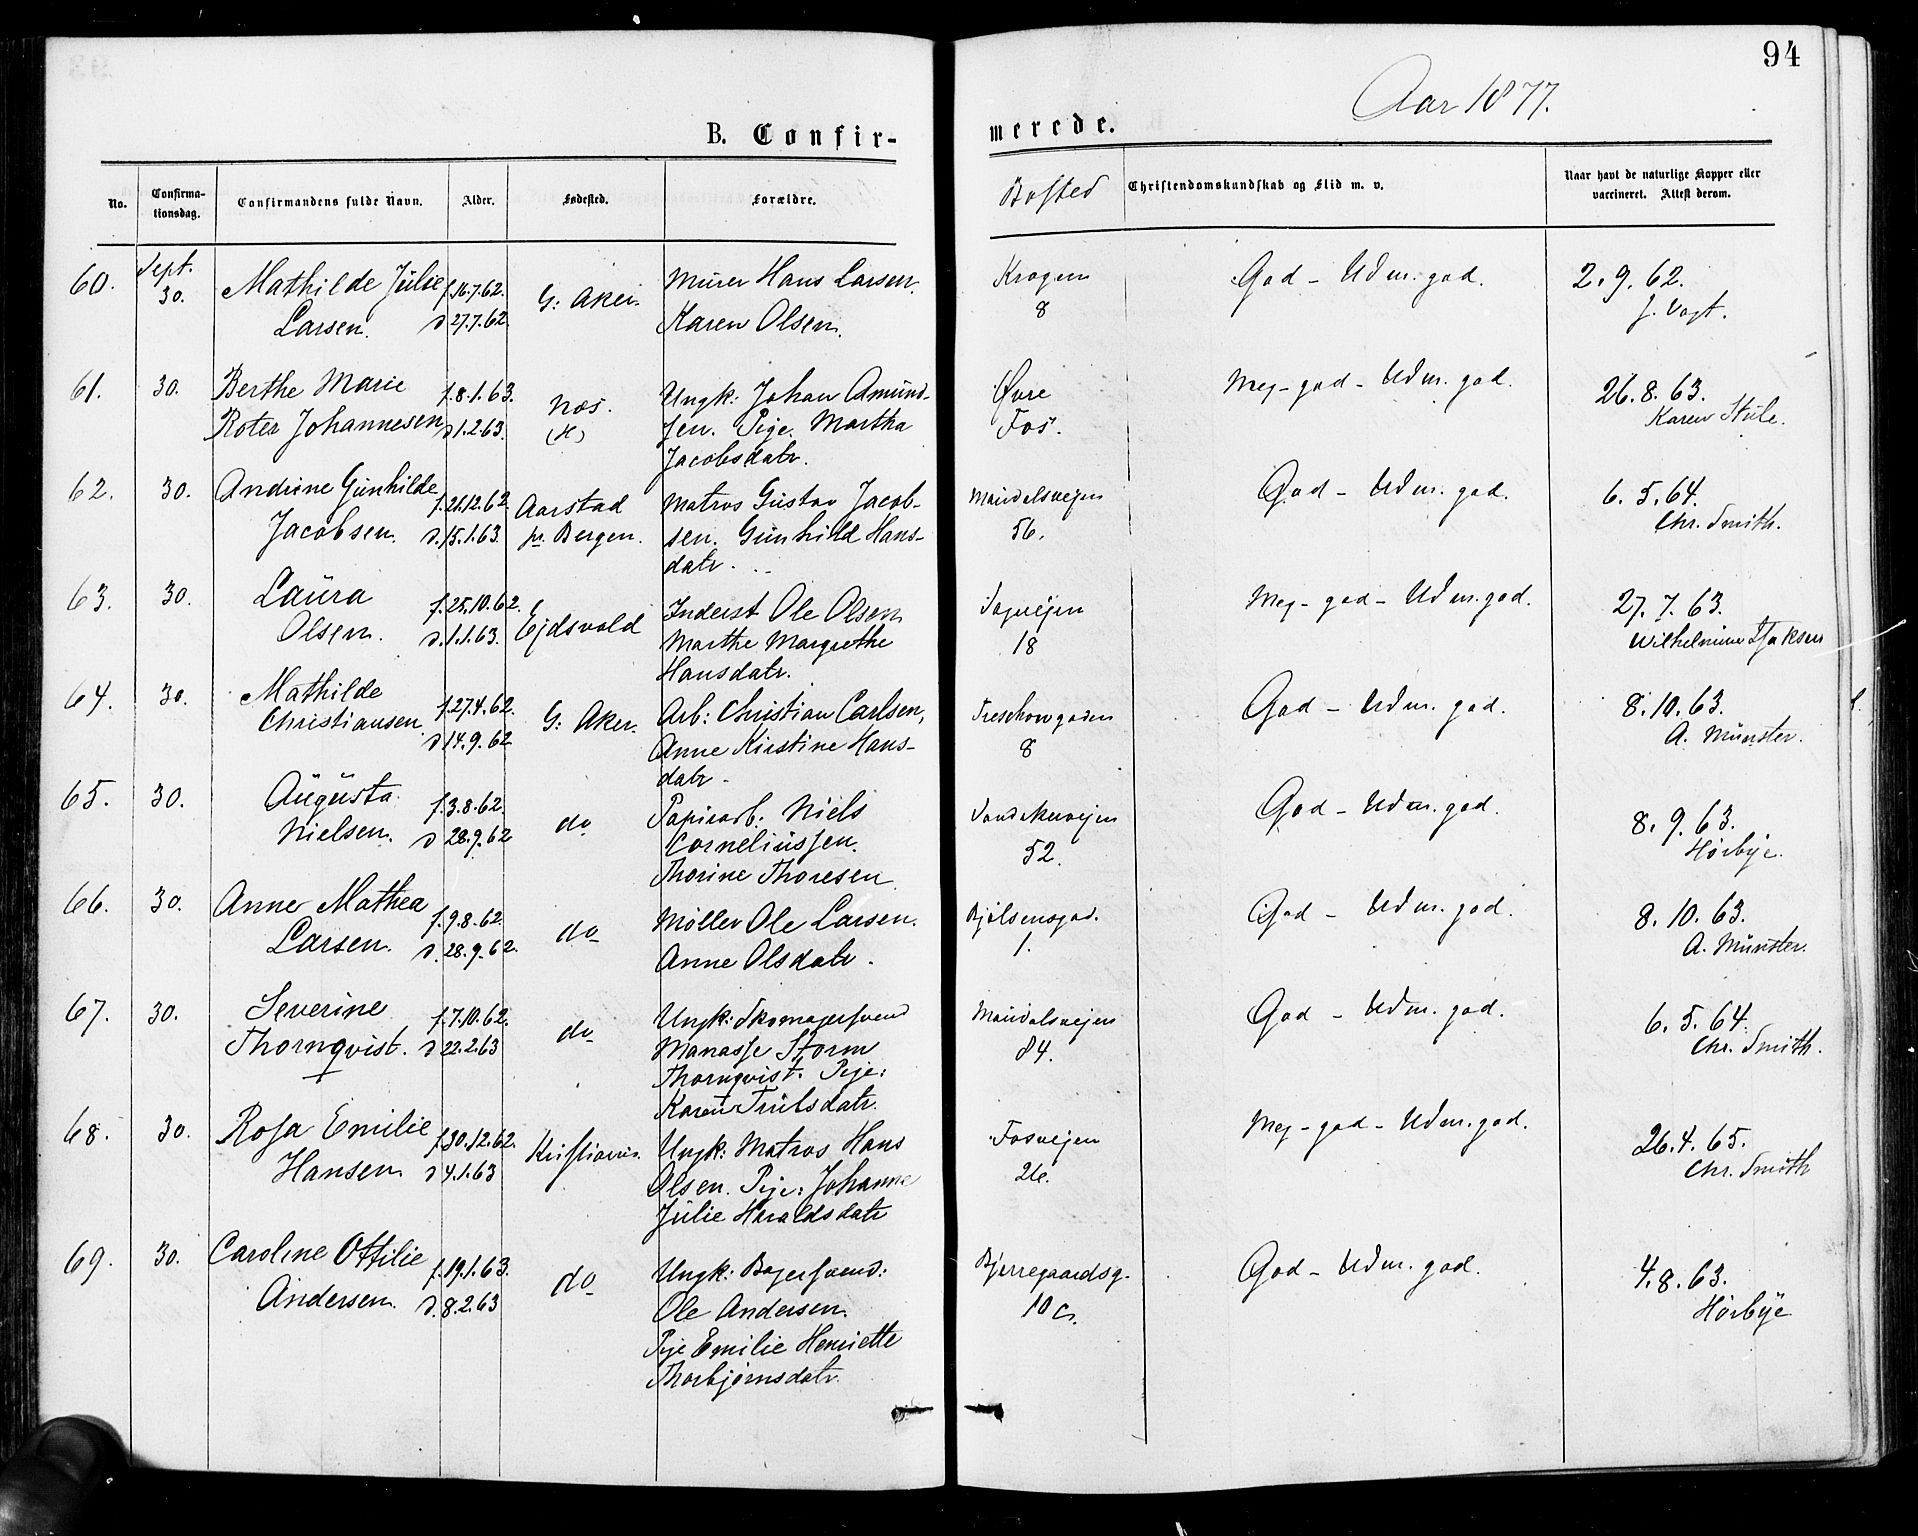 94
Aar 1877.
B. Confir-
merede.
No.
Confirma-
tionsdag.
Confirmandens fulde Navn.
Alder.
Fødested.
Forældre.
Bosted
Christendomskundskab og Flid m. v.
Naar havt de naturlige Kopper eller
vaccineret. Attest derom.
60.
Sept.
30.
Mathilde Julie
Larsen.
f. 16.7.62.
d 27.7.62.
G: Aker.
Murer Hans Larsen.
Karen Olsen.
Krogen
8
God - Udm. god.
2. 9. 62.
J. Vogt.
61.
30.
Berthe Marie
Roter Johannesen
f. 8.1.63.
d 1.2.63.
Næs.
(H)
Ungk: Johan Amund-
sen. Pige. Martha
Jacobsdatr.
Øvre
Fos.
Meg-god - Udm. god.
26. 8. 63.
Karen
62.
30.
Andrine Gunhilde
Jacobsen.
f. 21.12.62.
d. 15.1.63.
Aarstad
pr. Bergen.
Matros Gustav Jacob-
sen. Gunhild Hans-
datr.
Maridalsvejen
56.
God - Udm. god.
6. 5. 64.
Chr. Smith.
63.
30.
Laura
Olsen.
f. 25.10.62.
d. 1.1.63.
Ejdsvold
Inderst Ole Olsen
Marthe Margrethe
Hansdatr.
Sagvejen
18
Meg-god - Udm. god.
27. 7. 63.
Wilhelmine
64.
30.
Mathilde
Christiansen.
f. 27.4.62.
d 14.9.62
G: Aker.
Arb: Christian Carlsen,
Anne Kirstine Hans-
datr.
Treschowgaden
8
God - Udm. god.
8. 10. 63.
A. Münster.
65.
30.
Augusta
Nielsen.
f. 3.8.62.
d 28.9.62
do
Papirarb. Niels
Corneliussen.
Thorine Thoresen
Sandakervejen
52.
God - Udm. god.
8. 9. 63.
Hørbye.
66.
30.
Anne Mathea
Larsen.
f. 9.8.62.
d. 28.9.62.
do
Møller Ole Larsen.
Anne Olsdatr.
Bjølsensgad.
1.
God - Udm. god.
8. 10. 63.
A. Münster.
67.
30.
Severine
Thornqvist.
f. 7.10.62.
d 22.2.63
do
Ungk: Skomagersvend
Manasse Storm
Thornqvist. Pige:
Karen Trulsdatr.
Maridalsvejen
84.
God - Udm. god.
6. 5. 64.
Chr. Smith.
68.
30.
Rosa Emilie
Hansen
f. 30.12.62.
d 4.1.63
Kristiania.
Ungk: Matros Hans
Olsen. Pige: Johanne
Julie Haraldsdatr
Fosvejen
26.
Meg-god - Udm. god.
26. 4. 65.
Chr. Smith
69.
30.
Caroline Ottilie
Andersen.
f. 19.1.63.
d. 8.2.63
do
Ungk: Bagersvend:
Ole Andersen.
Pige Emilie Henriette
Thorbjørnsdatr.
Bjerregaardsg.
10 c.
God - Udm. god.
4. 8. 63.
Hørbye